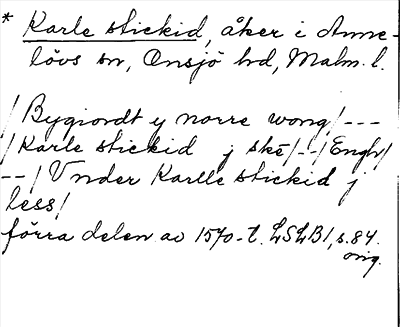 * Karle stickid, åker i Anne-
lövs sn, Onsjö hd, Malm. l.
/Bygiordt y norre wong/---
/Karle stickid j skē/--/Engh/
--/Vnder Karlle stickid j
less/
förra delen av 1570-t. LSLB1, s. 84.
orig.